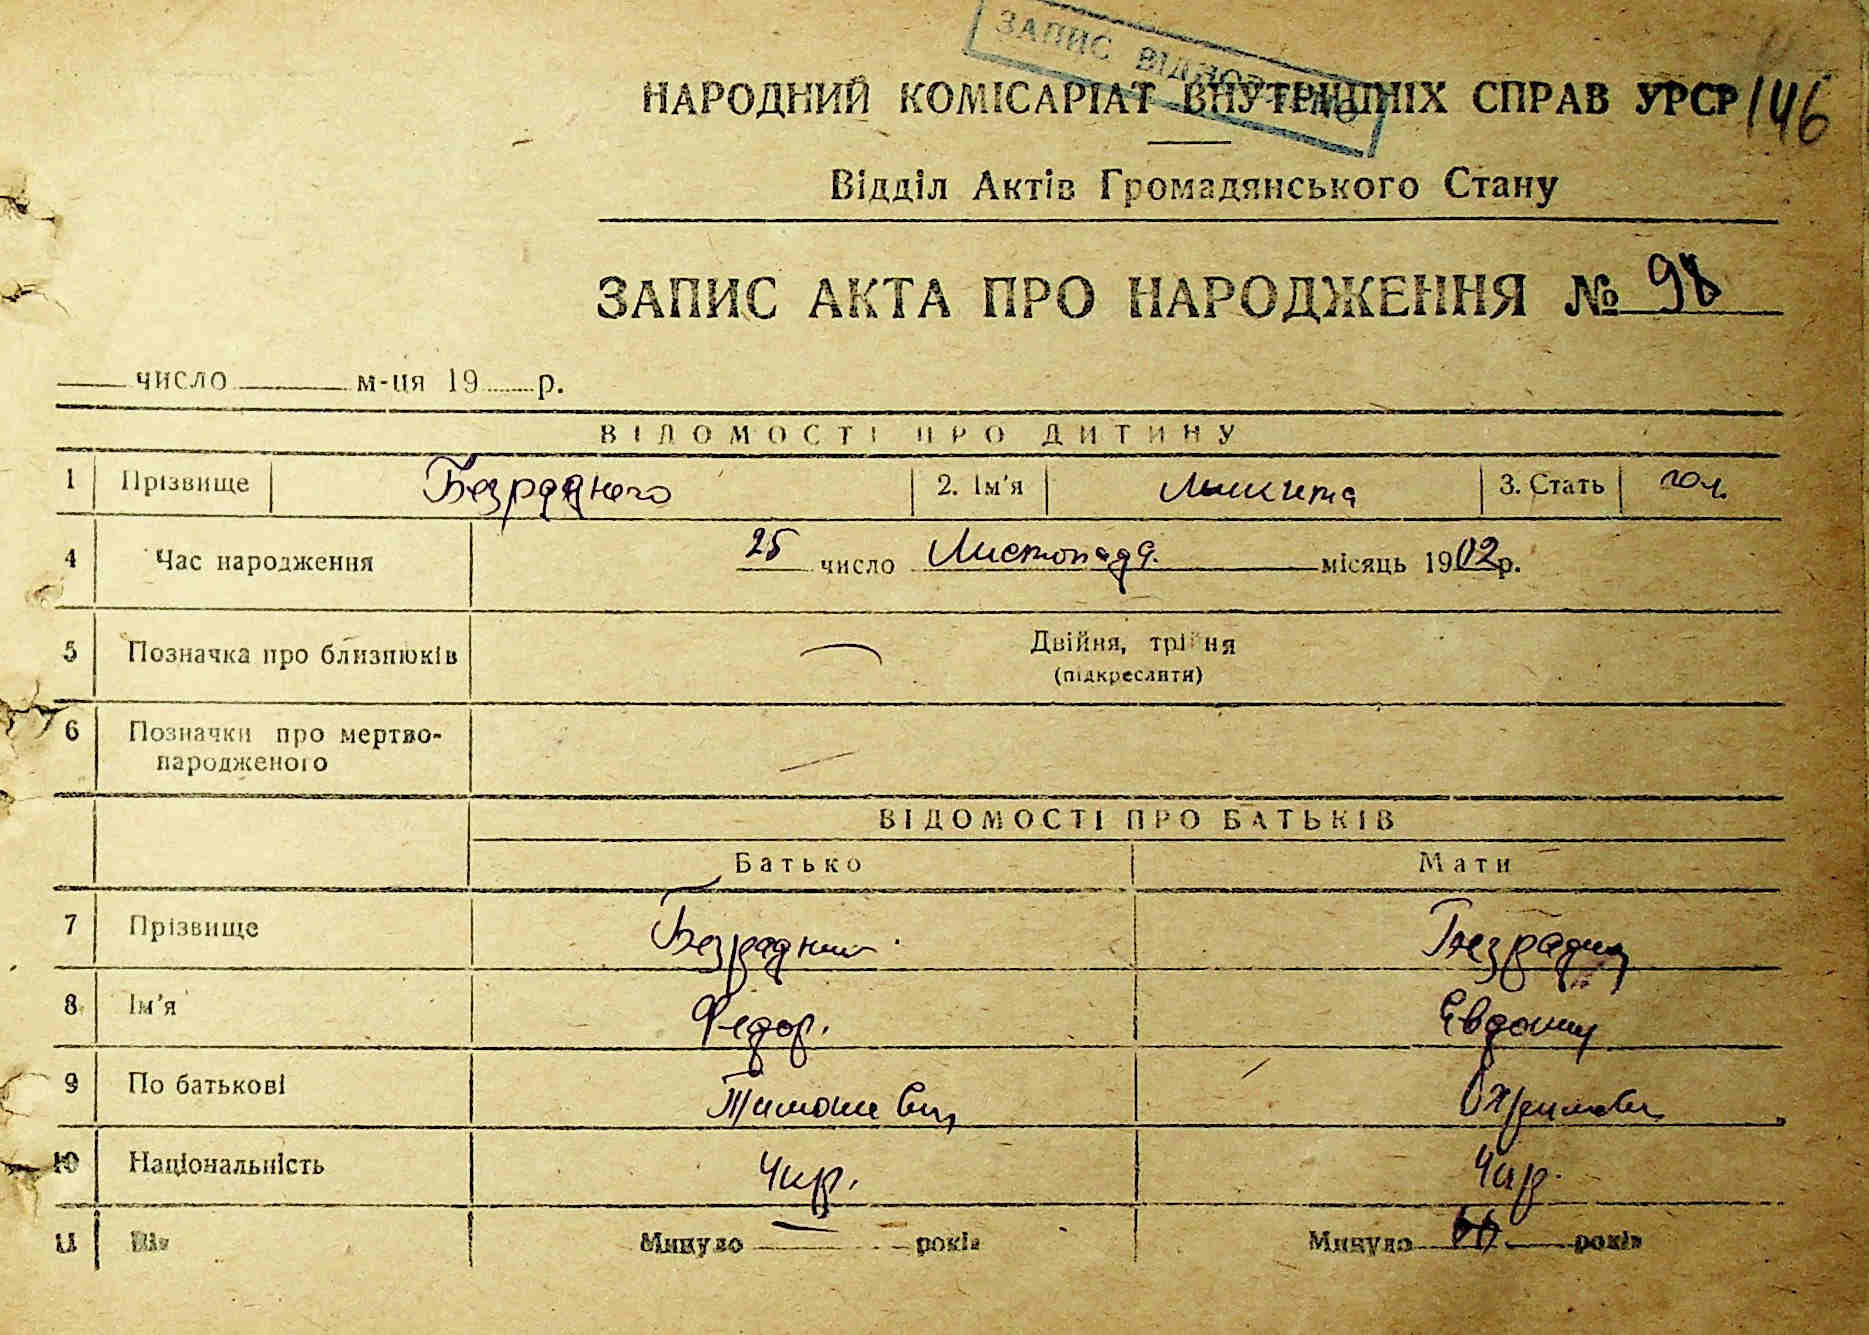 ЗАПИС ВІДНОВЛЕНО
НАРОДНИЙ КОМІСАРІАТ ВНУТРІШНІХ СПРАВ УРСР 146
Відділ Актів Громадянського Стану
ЗАПИС АКТА ПРО НАРОДЖЕННЯ № 98
число м-ця 19 р.
ВІДОМОСТІ ПРО ДИТИНУ
1 Прізвище Безродного 2. Ім'я Микита 3. Стать чол.
4 Час народження 25 число Листопада місяць 1902 р.
5 Позначка про близнюків Двійня, трійня
(підкреслити)
6 Позначки про мертво-
народженого
ВІДОМОСТІ ПРО БАТЬКІВ
Батько Мати
7 Прізвище Безрадний
8 Ім'я Федор.
9 По батькові
10 Національність Укр. Укр.
11 Вік Минуло років Минуло років